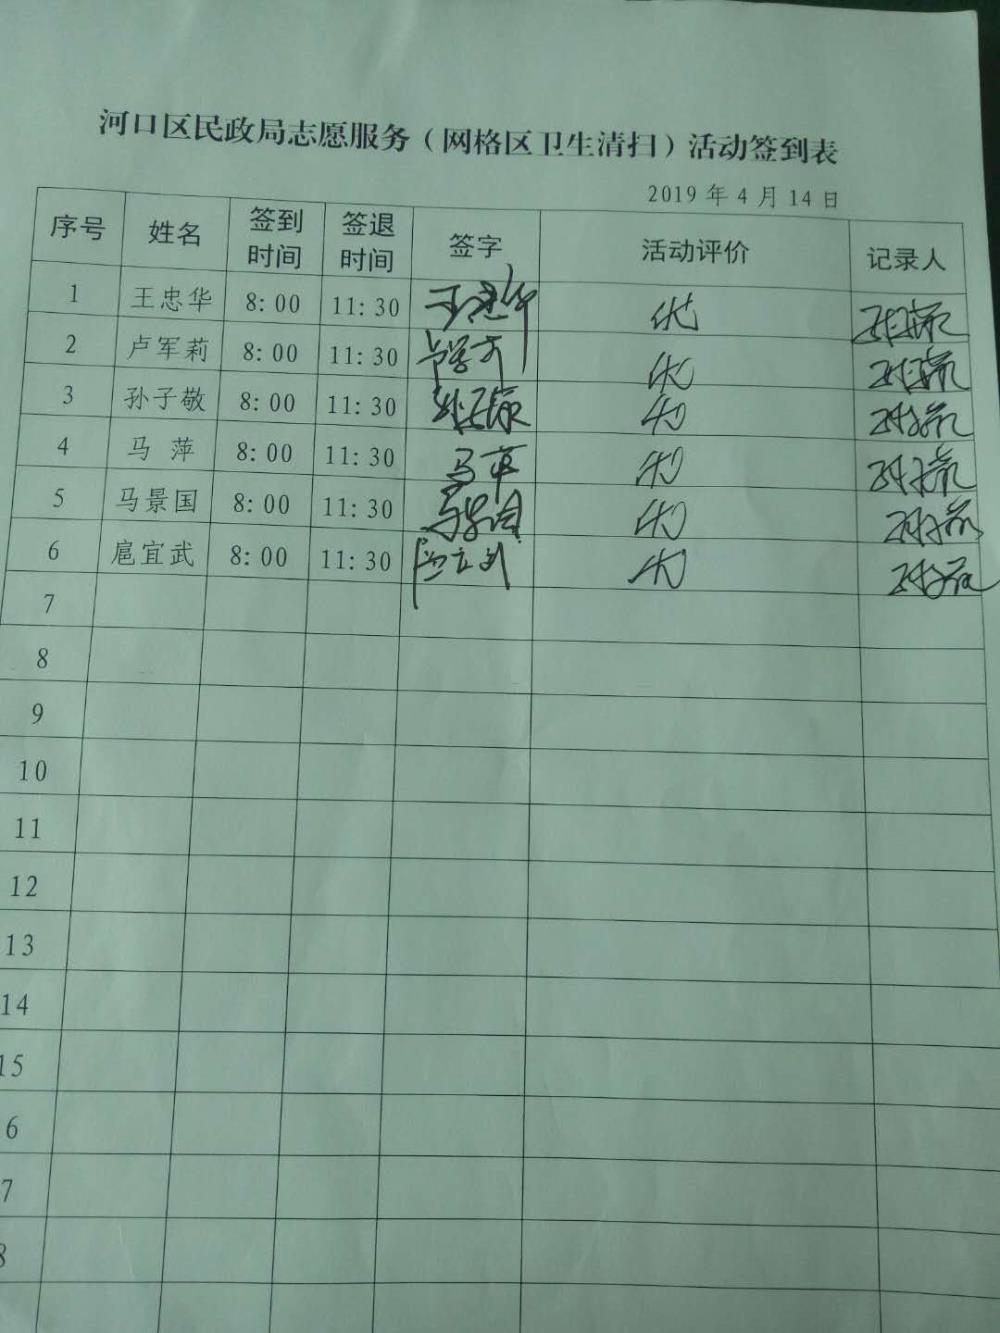 河口区民政局志愿服务（网格区卫生清扫）活动签到表
2019 年 4 月 14 日
序号 姓名 签到时间 签退时间 签字 活动评价 记录人
1 王忠华 8：00 11：30 王忠华 优
2 卢军莉 8：00 11：30 优
3 孙子敬 8：00 11：30 优
4 马 萍 8：00 11：30 马萍 优
5 马景国 8：00 11：30 马景国 优
6 扈宜武 8：00 11：30 优
7
8
9
10
11
12
13
14
15
6
7
8